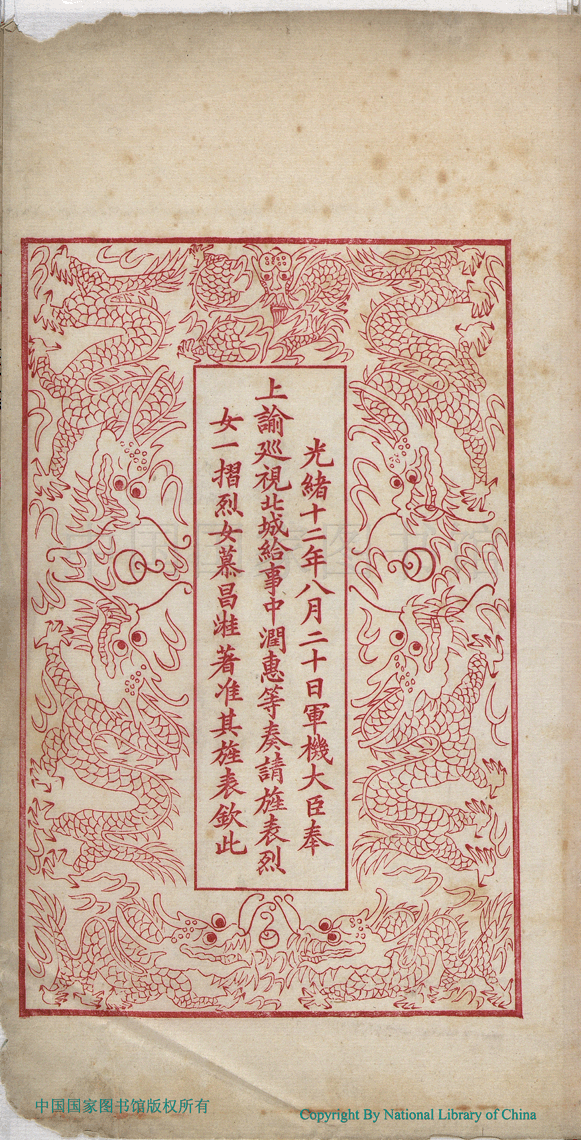 光緒十二年八月二十日軍機大臣奉
上諭巡視北城給事中潤惠等奏請旌表烈
女一摺烈女慕昌溎著准其旌表欽此
中国国家图书馆版权所有
Copyright By National Library of China